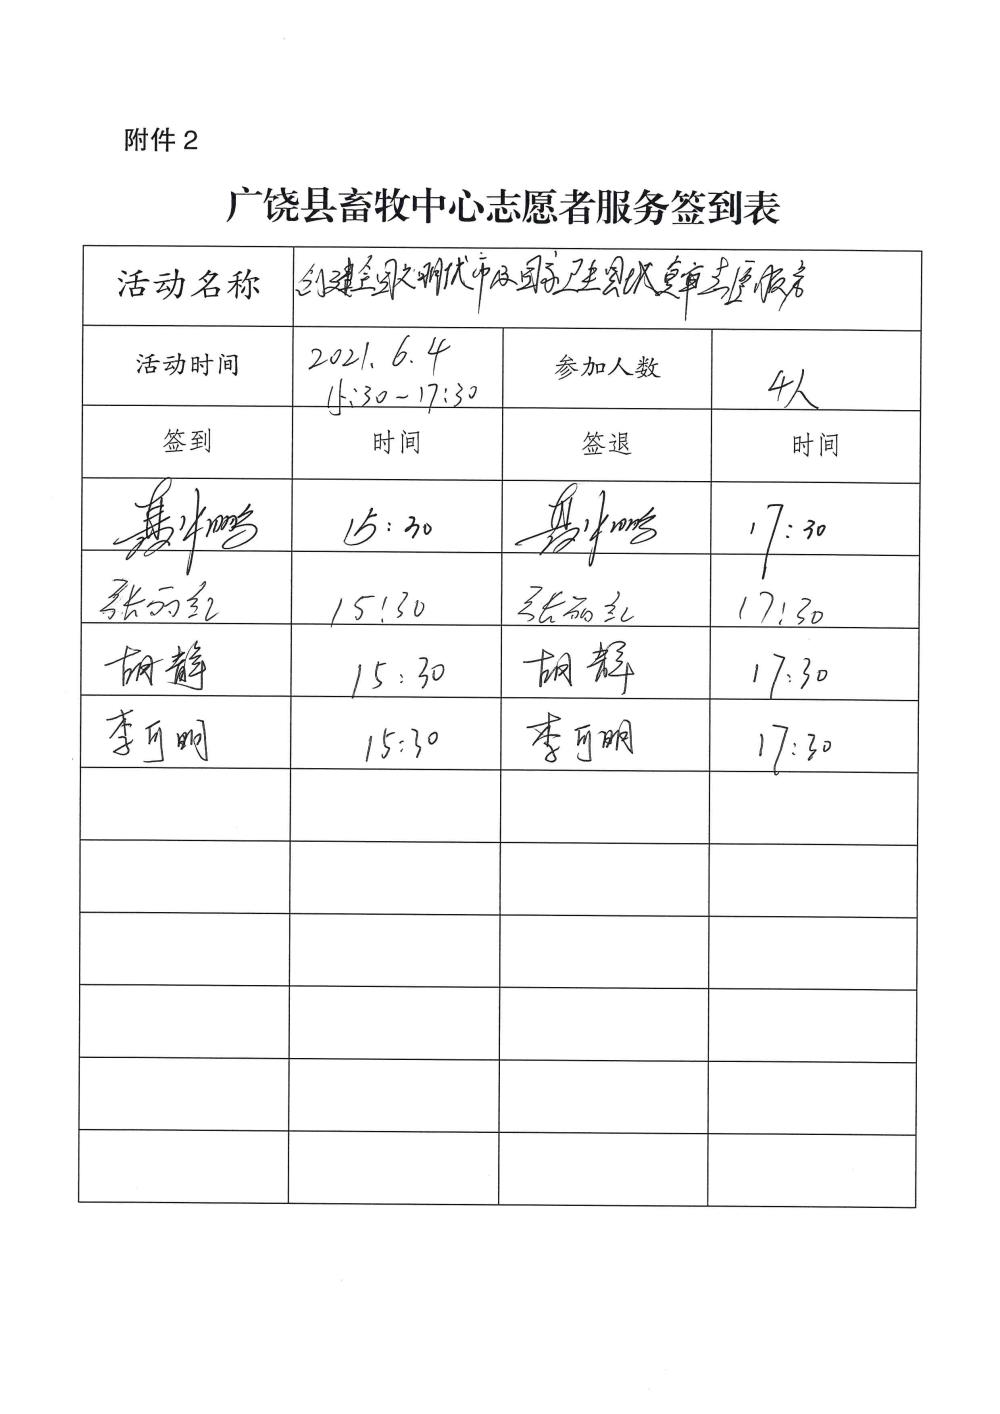 附件2
广饶县畜牧中心志愿者服务签到表
活动名称 创建全国文明城市及国家卫生县城复审志愿服务
活动时间 2021.6.4 参加人数 4人
15:30-17:30
签到 时间 签退 时间
15:30 17:30
张丽红 15:30 张丽红 17:30
胡静 15:30 胡静 17:30
李可明 15:30 李可明 17:30